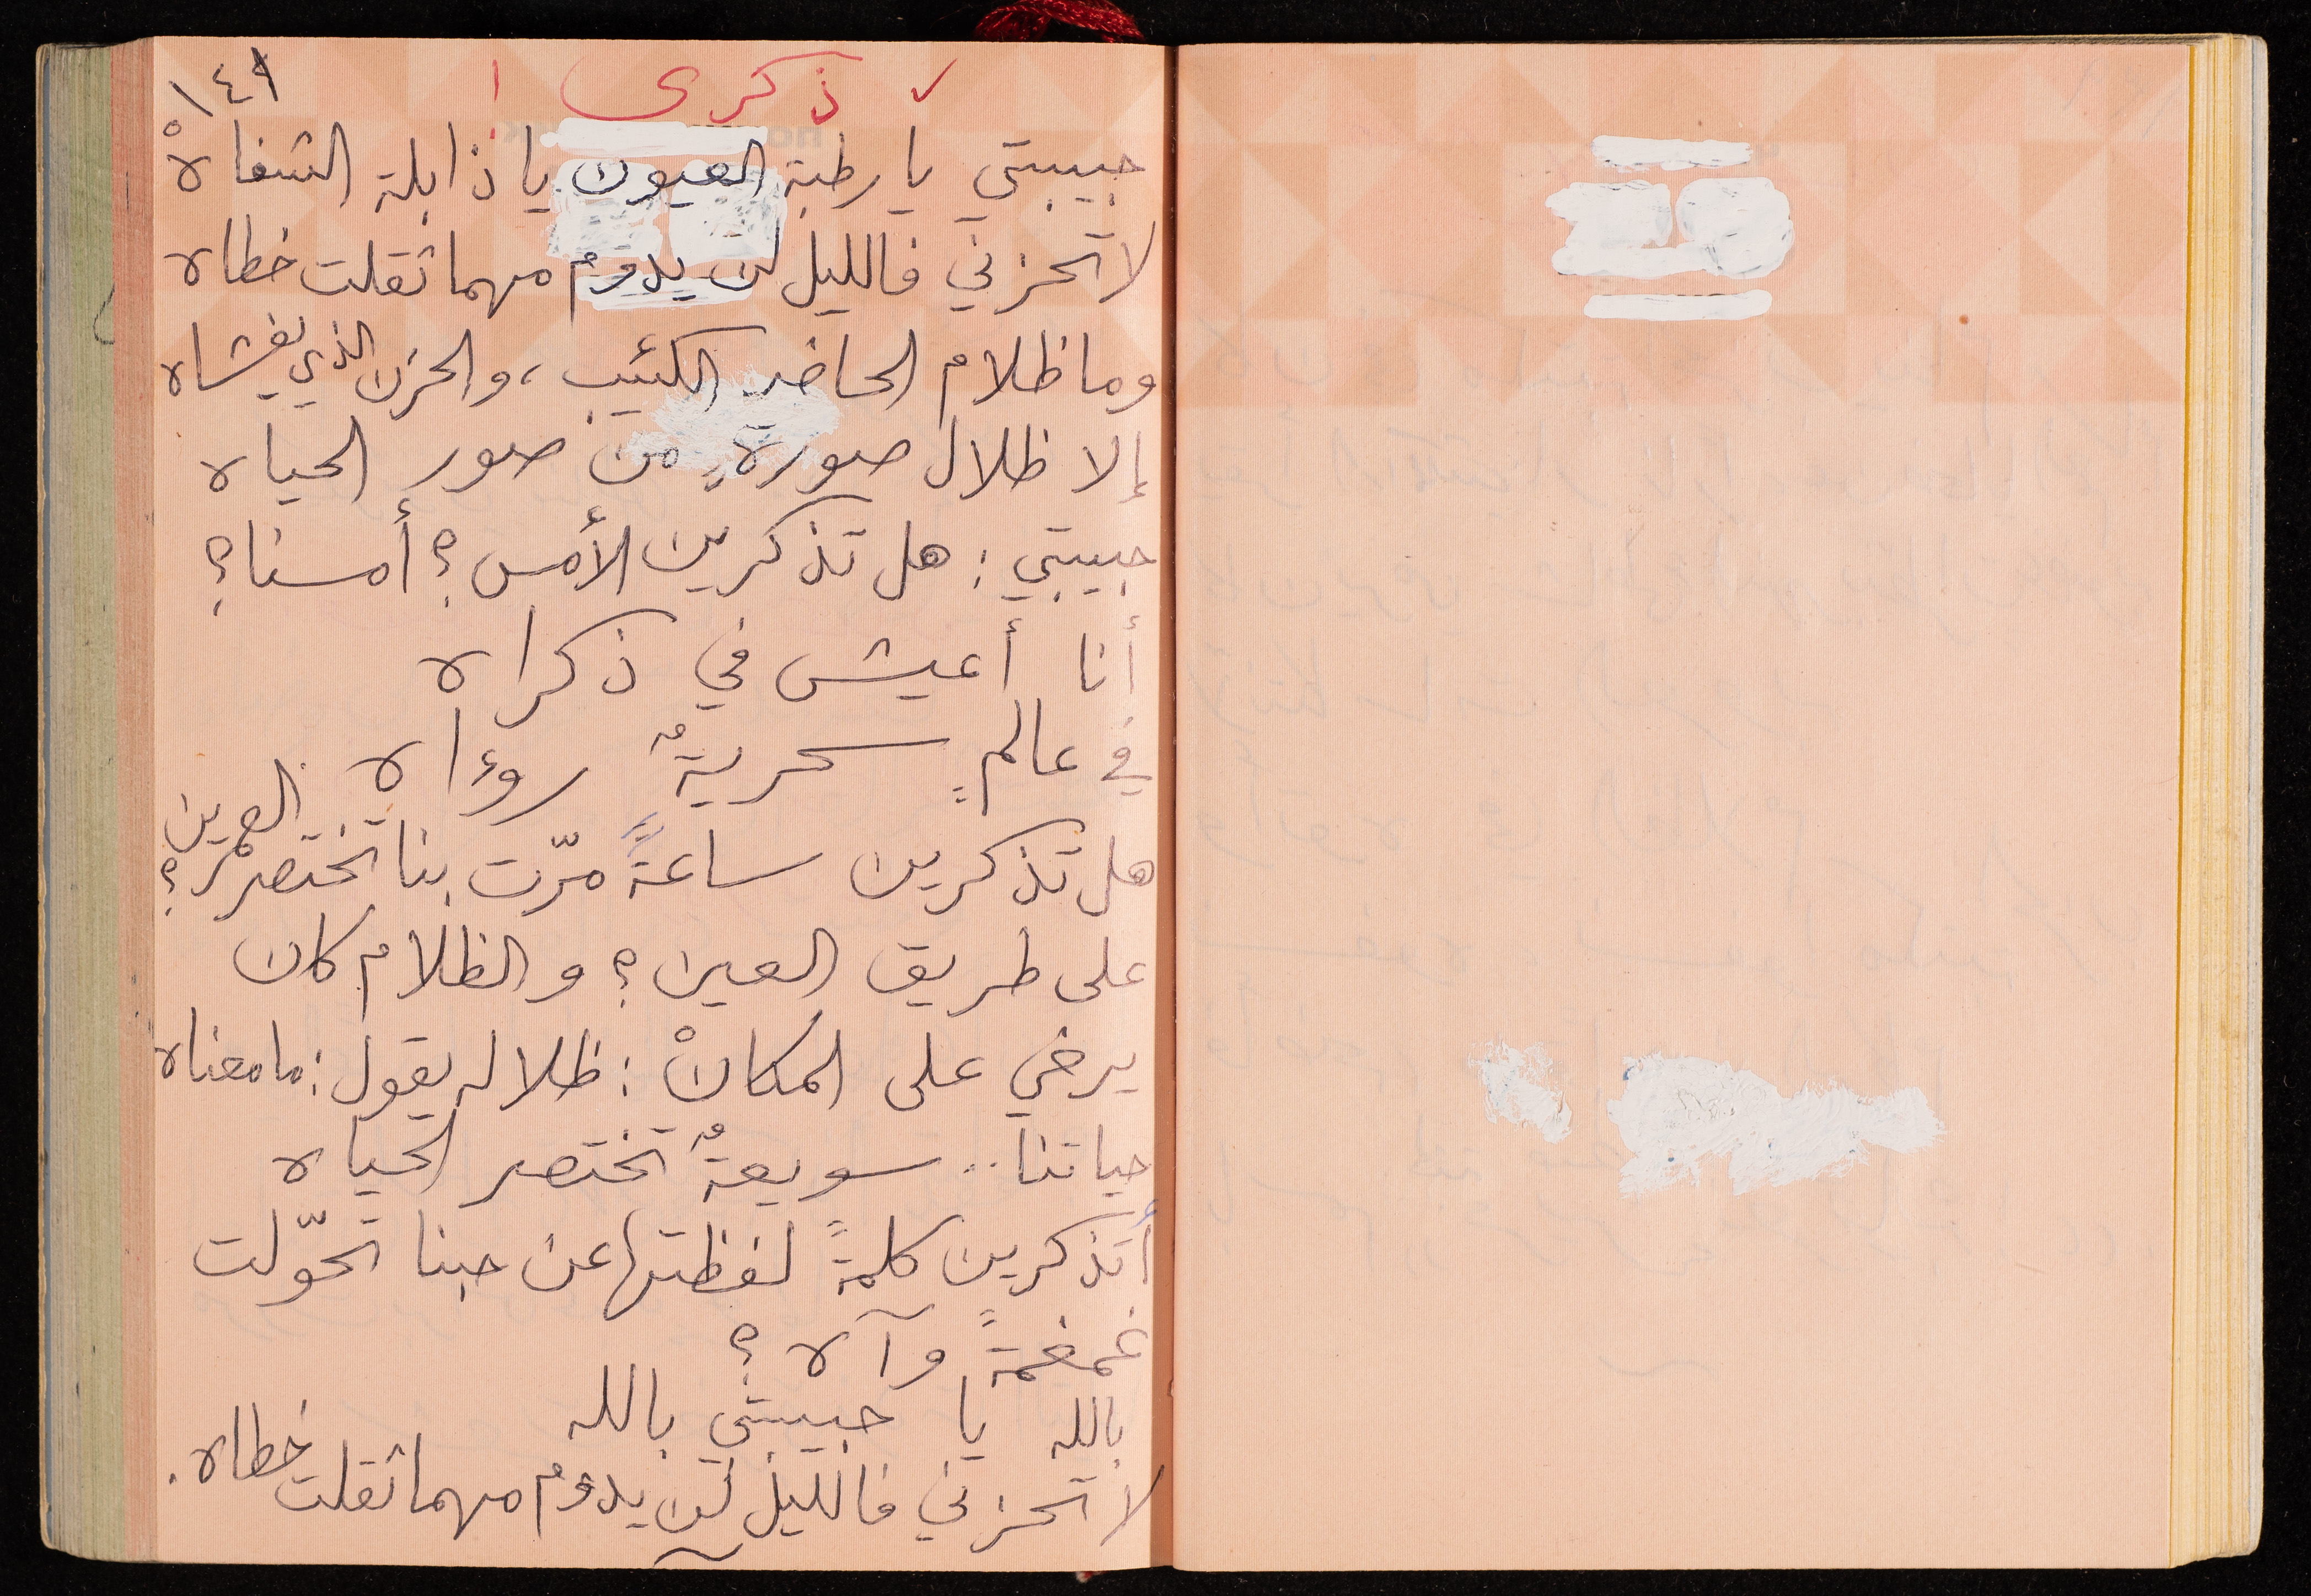 ١٤١
ذكرى !
حبيبتي يا رطبة العيون يا ذابلة الشفاهْ
لا تحزني فالليل لن يدومُ مهما ثقلت خطاه
وما ظلام الحاضر الكئيب، والحزن الذي يغشاه
إلا ظلال صورةٍ من صور الحياه
حبيبتي: هل تذكرين الأمس؟ أمسنا؟
أنا أعيش في ذكراه
في عالمٍ سحريةٌ رؤاه
هل تذكرين ساعةً مرّت بنا تختصر العمر؟
على طريق العين؟ والظلام كان
يرخي على المكانْ: ظلاله يقول: ما معناه
حياتنا.. سويعةٌ تختصر الحياه
أتذكرين كلمةً لفظتها عن حبنا تحوّلت
غمغمةً وآه؟
بالله يا حبيبتي بالله
لا تحزني فالليل لن يدومُ مهما ثقلت خطاه.